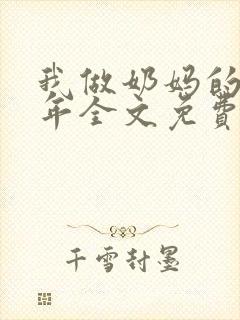 我做奶妈的
年全文免費
千雪封墨